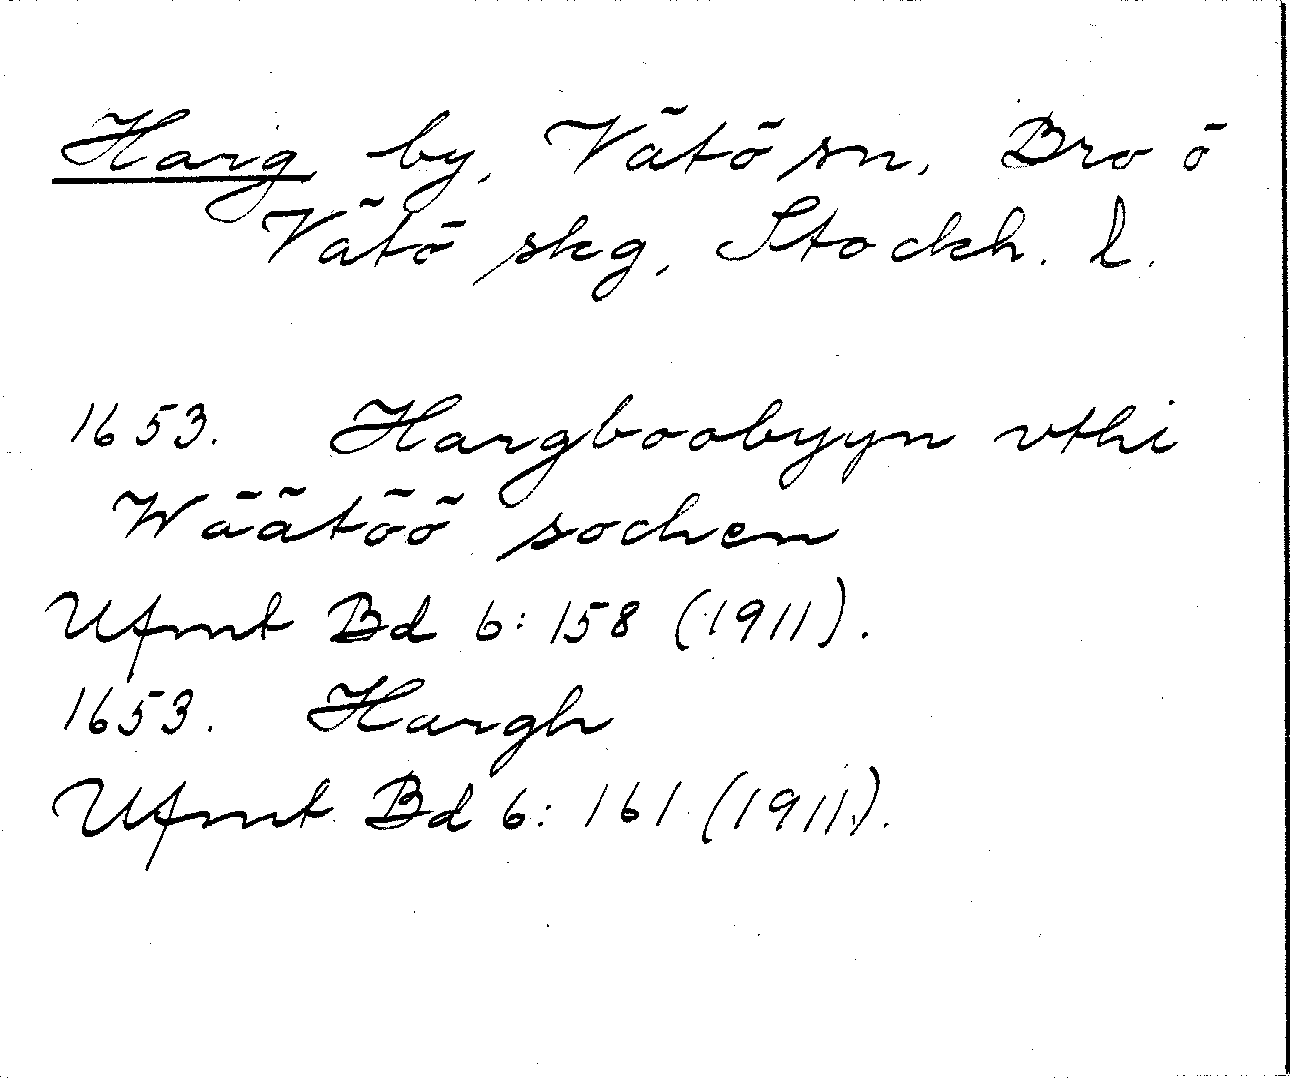 Harg by, Vätö sn, Bro o
Vätö skg, Stockh. l.
1653. Hargboobyyn vthi
Wäätöö sochen
Ufmt Bd 6: 158 (1911).
1653. Hargh
Ufmt Bd 6: 161 (1911).